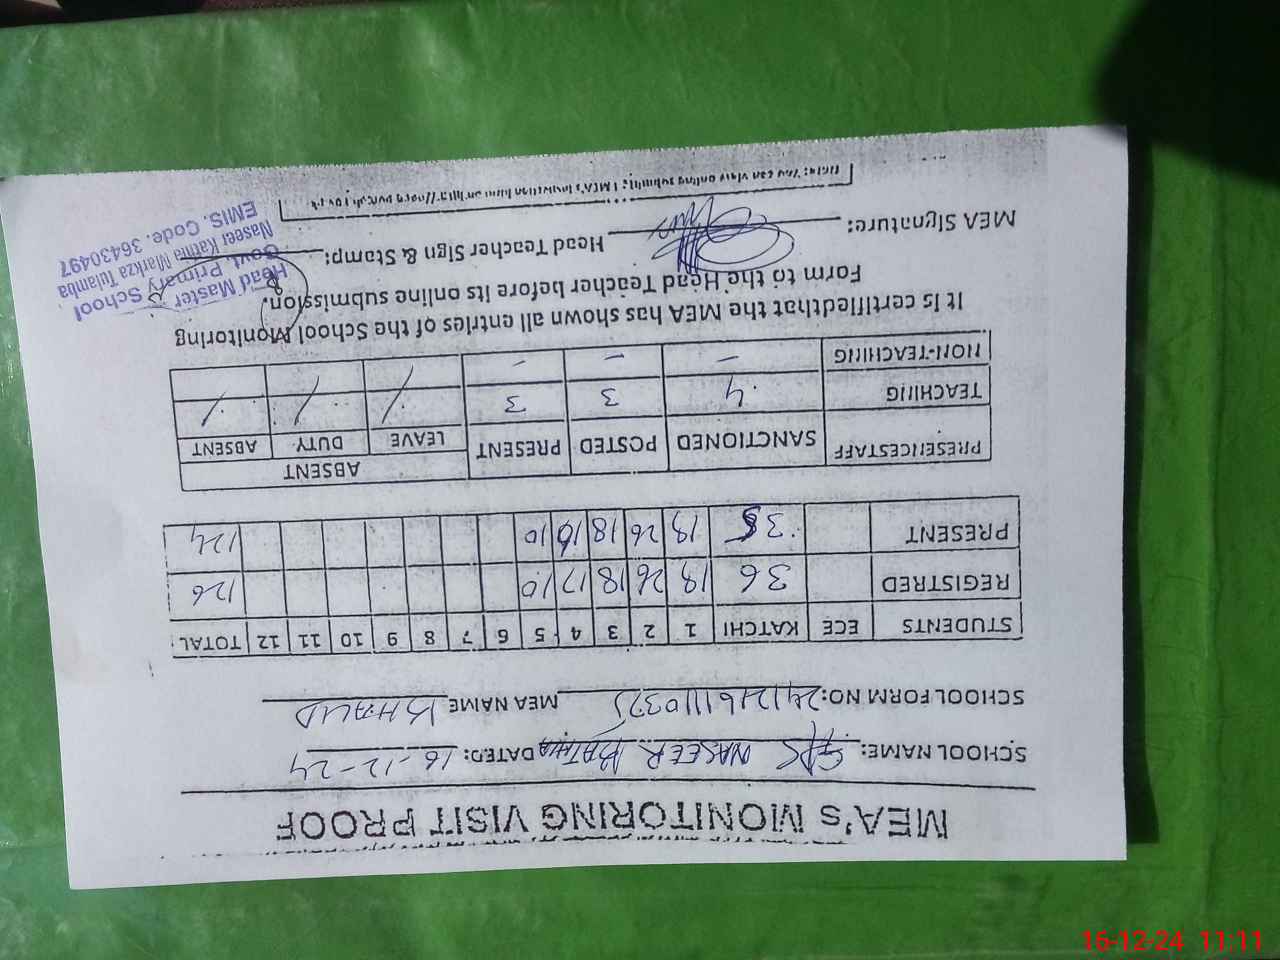 MEA's MONITORING VISIT PROOF
SCHOOL NAME: GPS NASEER KATHIA DATED: 16-12-24
SCHOOL FORM NO: MEA NAME KHALID
STUDENTS ECE KATCHI 1 2 3 4 5 6 7 8 9 10 11 12 TOTAL
REGISTRED 36 19 26 18 17 10 126
PRESENT 35 19 26 18 16 10 124
PRESENCESTAFF SANCTIONED POSTED PRESENT ABSENT
LEAVE DUTY ABSENT
TEACHING 4 3 3 / / /
NON-TEACHING - - -
It is certifiedthat the MEA has shown all entries of the School Monitoring
Form to the Head Teacher before its online submission.
MEA Signature: Head Teacher Sign & Stamp:
Head Master
Govt. Primary School
Naseer Kathia Markza Tulamba
EMIS. Code. 36430497
Note: You can view online
16-12-24 11:11